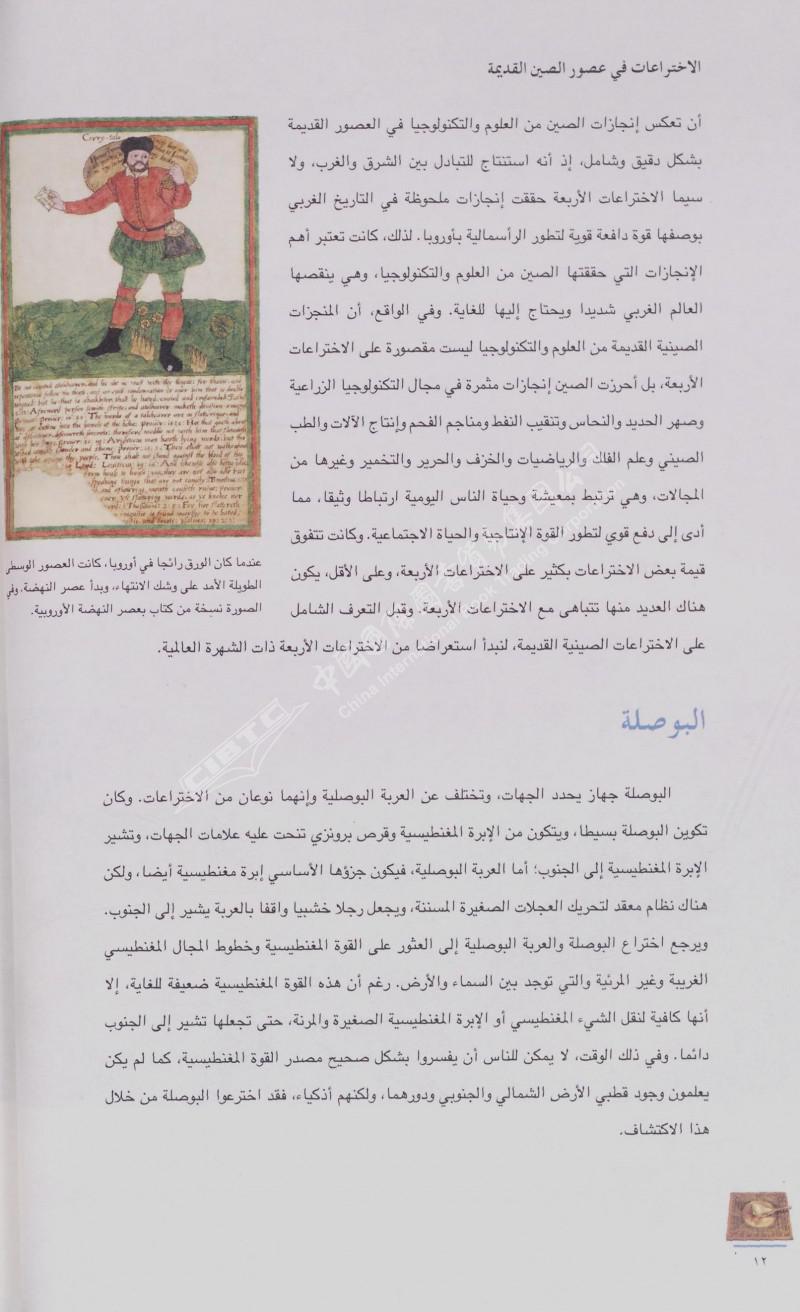 الاختراعات في عصور الصين القديمة
أن تعكس إنجازات الصين من العلوم والتكنولوجيا في العصور القديمة
بشكل دقيق وشامل، إذ أنه استنتاج للتبادل بين الشرق والغرب، ولا
سيما الاختراعات الأربعة حققت إنجازات ملحوظة في التاريخ الغربي
بوصفها قوة دافعة قوية لتطور الرأسمالية بأوروبا. لذلك، كانت تعتبر أهم
الإنجازات التي حققتها الصين من العلوم والتكنولوجيا، وهي ينقصها
العالم الغربي شديدا ويحتاج إليها للغاية. وفي الواقع، أن المنجزات
الصينية القديمة من العلوم والتكنولوجيا ليست مقصورة على الاختراعات
الأربعة، بل أحرزت الصين إنجازات مثمرة في مجال التكنولوجيا الزراعية
وصهر الحديد والنحاس وتنقيب النفط ومناجم الفحم وإنتاج الآلات والطب
الصيني وعلم الفلك والرياضيات والخزف والحرير والتخمير وغيرها من
المجالات، وهي ترتبط بمعيشة وحياة الناس اليومية ارتباطا وثيقا، مما
أدى إلى دفع قوي لتطور القوة الإنتاجية والحياة الاجتماعية. وكانت تتفوق
قيمة بعض الاختراعات بكثير على الاختراعات الأربعة، وعلى الأقل، يكون
هناك العديد منها تتباهى مع الاختراعات الأربعة. وقبل التعرف الشامل
على الاختراعات الصينية القديمة، لنبدأ استعراضا من الاختراعات الأربعة ذات الشهرة العالمية.
عندما كان الورق رائجا في أوروبا، كانت العصور الوسطى
الطويلة الأمد على وشك الانتهاء، وبدأ عصر النهضة. وفي
الصورة نسخة من كتاب بعصر النهضة الأوروبية.
البوصلة
البوصلة جهاز يحدد الجهات، وتختلف عن العربة البوصلية وإنهما نوعان من الاختراعات. وكان
تكوين البوصلة بسيطا، ويتكون من الإبرة المغنطيسية وقرص برونزي تنحت عليه علامات الجهات، وتشير
الإبرة المغنطيسية إلى الجنوب؛ أما العربة البوصلية، فيكون جزؤها الأساسي إبرة مغنطيسية أيضا، ولكن
هناك نظام معقد لتحريك العجلات الصغيرة المسننة، ويجعل رجلا خشبيا واقفا بالعربة يشير إلى الجنوب.
ويرجع اختراع البوصلة والعربة البوصلية إلى العثور على القوة المغنطيسية وخطوط المجال المغنطيسي
الغريبة وغير المرئية والتي توجد بين السماء والأرض. رغم أن هذه القوة المغنطيسية ضعيفة للغاية، إلا
أنها كافية لنقل الشيء المغنطيسي أو الإبرة المغنطيسية الصغيرة والمرنة، حتى تجعلها تشير إلى الجنوب
دائما. وفي ذلك الوقت، لا يمكن للناس أن يفسروا بشكل صحيح مصدر القوة المغنطيسية، كما لم يكن
يعلمون وجود قطبي الأرض الشمالي والجنوبي ودورهما، ولكنهم أذكياء، فقد اخترعوا البوصلة من خلال
هذا الاكتشاف.
CIBTC
China International Book Trading
١٢